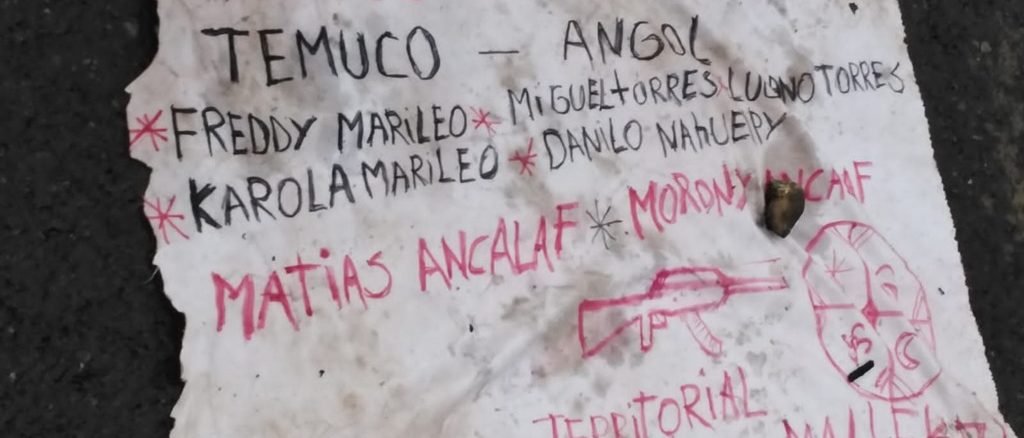 TEMUCO — ANGOL
*FREDDY MARiLEO* MiGUEL TORRES LUCiANO TORRES
*KAROLA MARiLEO * DANiLO NAHUELPY
MATiAS ANCALAF * MORONY ANCALAF
TERRiTORiAL